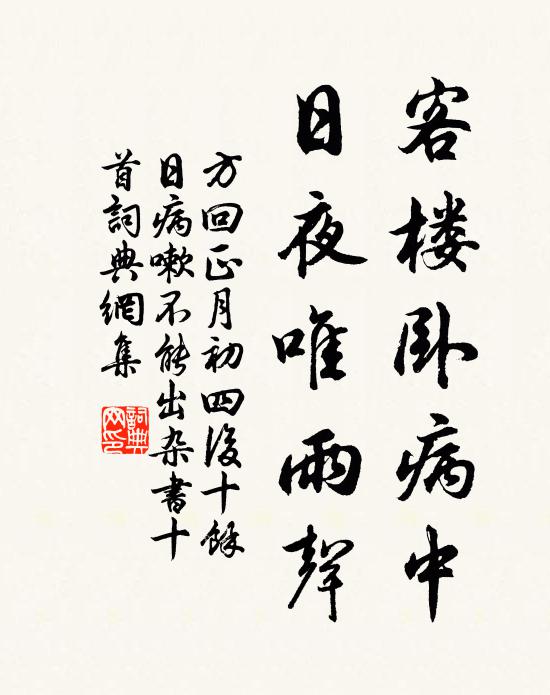 客楼卧病中
日夜唯雨聲
方回正月初四後十餘
日病嗽不能出杂書十
首詞典網集
詞典网印